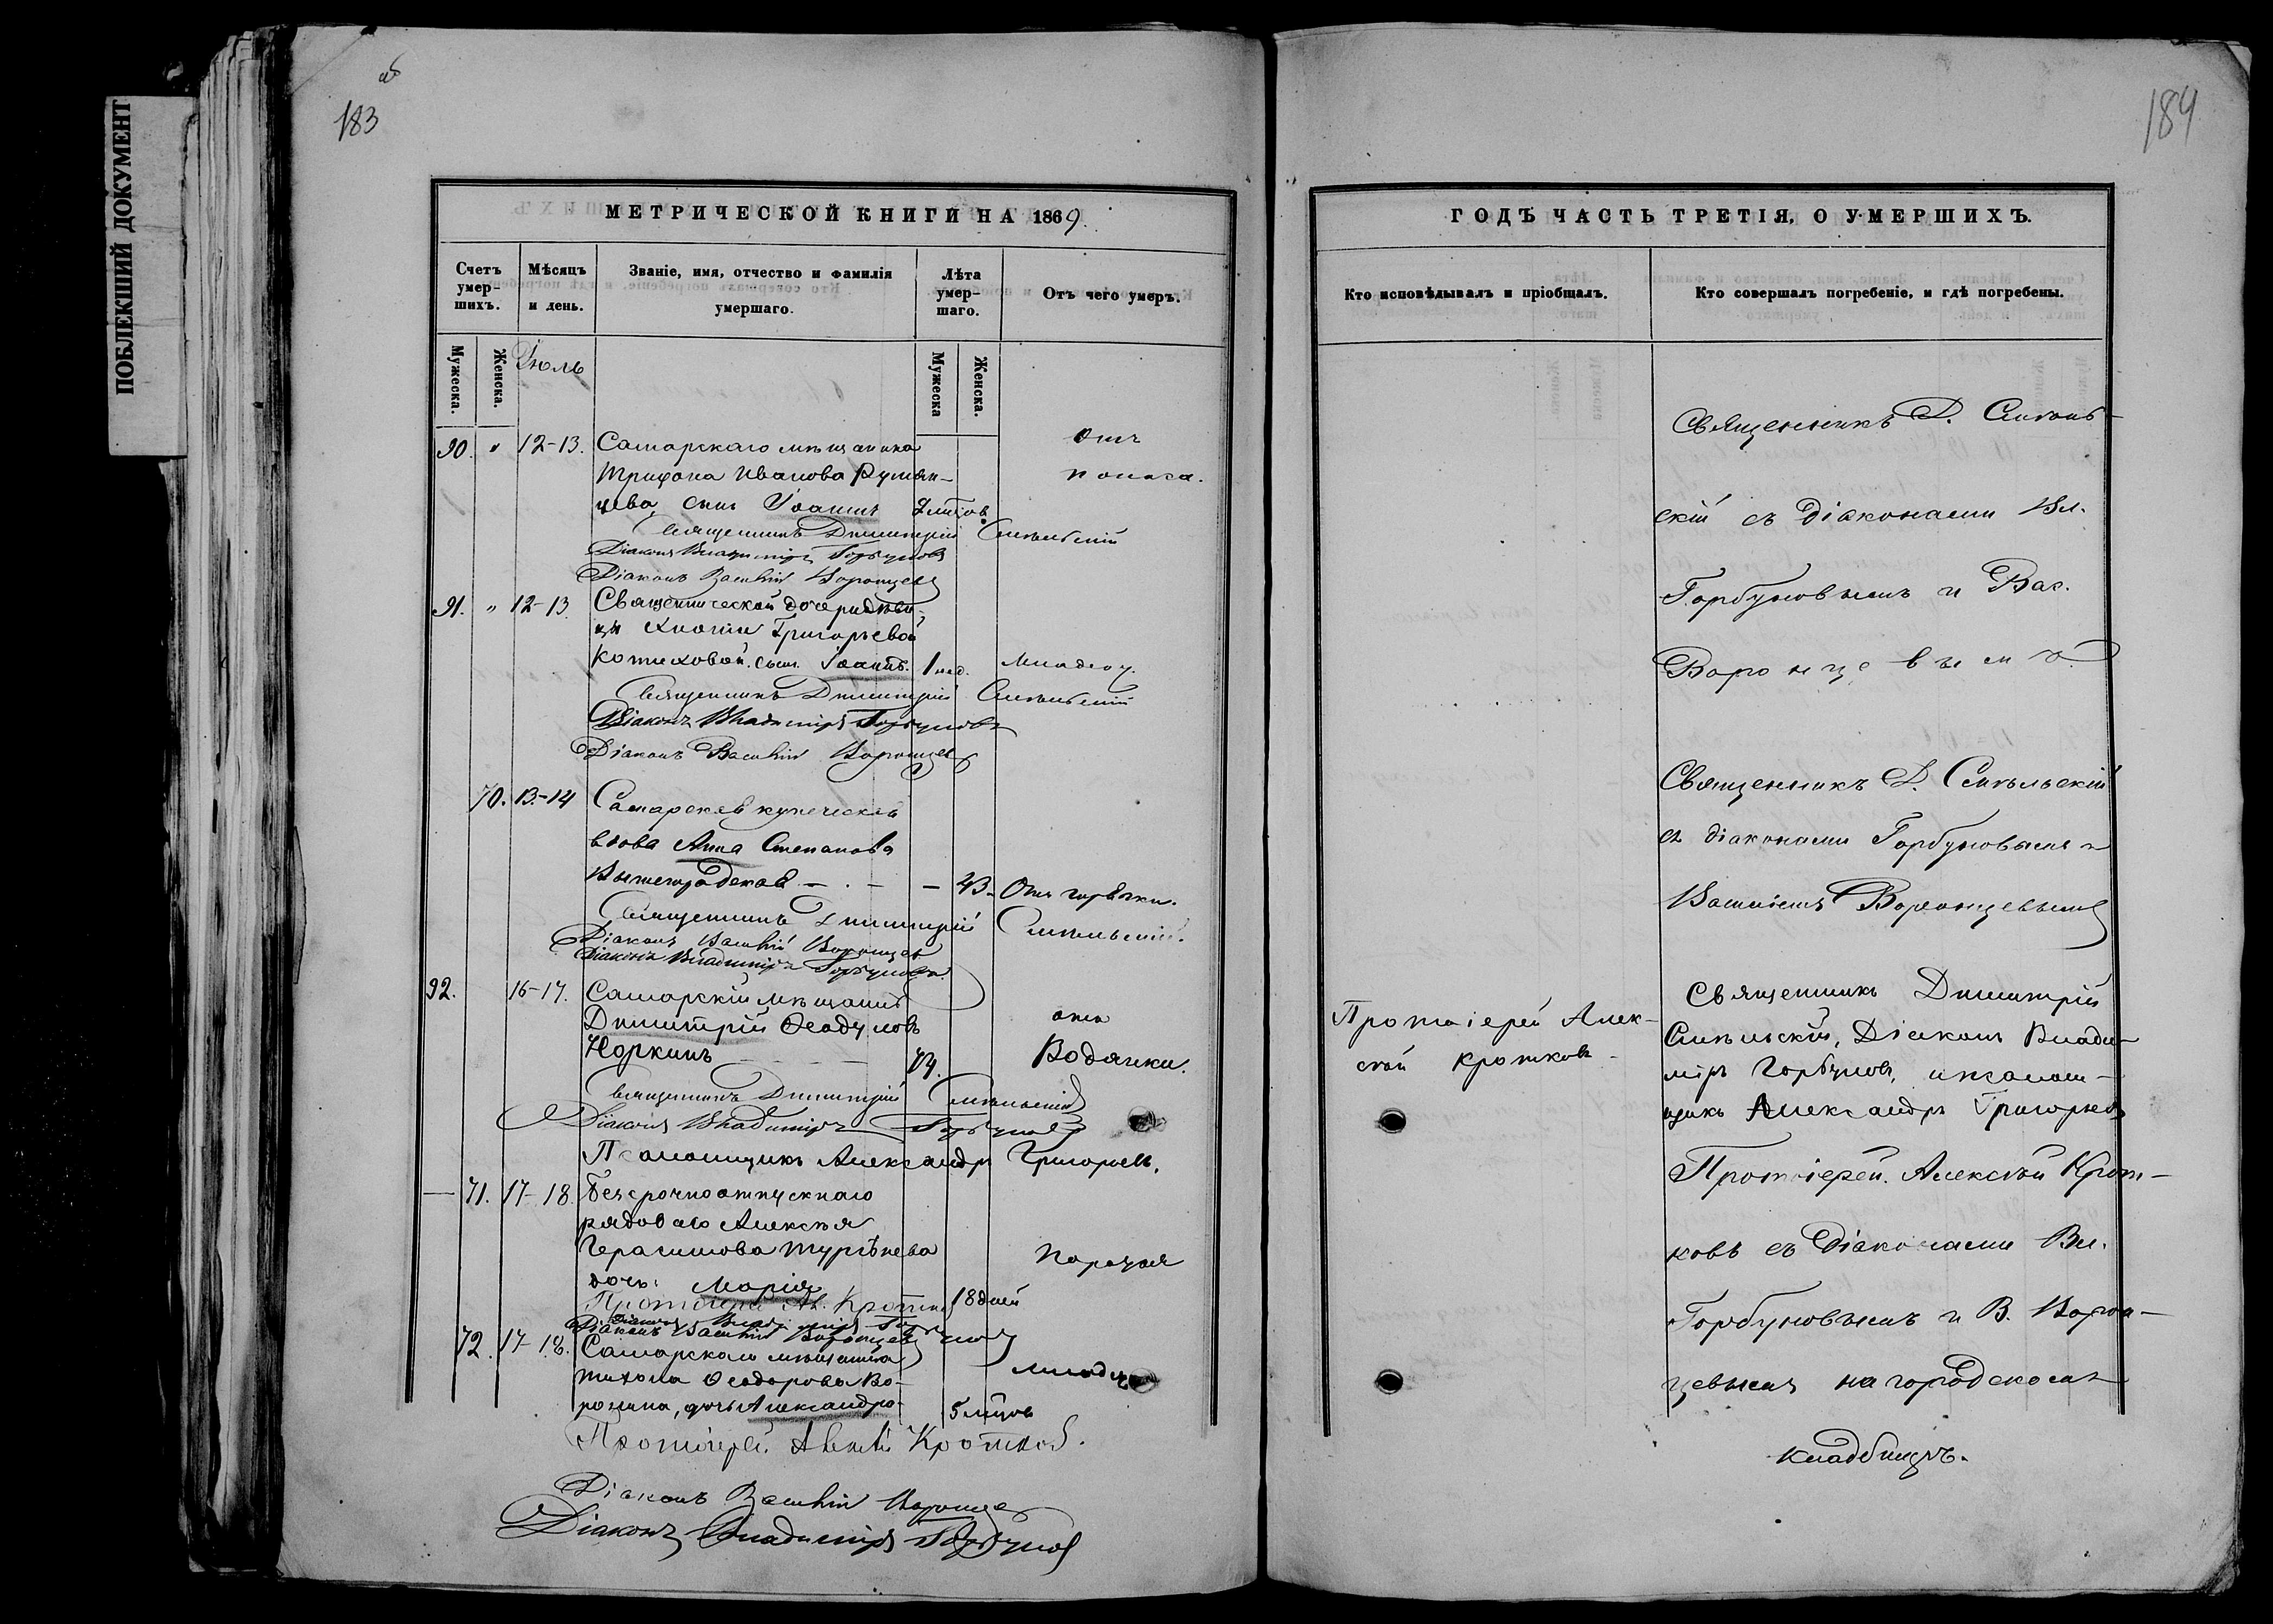 ПОБЛЕКШИЙ ДОКУМЕНТ
об
183
МЕТРИЧЕСКОЙ КНИГИ НА 1869.
Счетъ умер-шихъ.
Мѣсяцъ и день.
Званіе, имя, отчество и фамилія умершаго.
Лѣта умер-шаго.
Отъ чего умеръ.
Мужеска.
Женска.
Іюль
Мужеска
Женска.
90. " 12-13. Самарскаго мѣщанина
Трифона Иванова Румян-
цева, сынъ Іоаннъ
отъ
поноса.
Священникъ Димитрій Смѣльскій
Діаконъ Владиміръ Горбуновъ
Діаконъ Василій Воронцевъ
91. " 12-13. Священнической дочери дѣви-
цы Григорьевой
сынъ Іоаннъ. 1 нед. Младен.
Священникъ Димитрій Смѣльскій
Діаконъ Владиміръ Горбуновъ
Діаконъ Василій Воронцевъ
70. 13-14 Самарская купеческая
вдова Анна Степанова
Вышеградская - . - - 43. Отъ горячки.
Священникъ Димитрій Смѣльскій.
Діаконъ Василій Воронцев
Діаконъ Владиміръ Горбуновъ
92. 16-17. Самарскій мѣщанинъ
Димитрій Ѳеодуловъ
Норкинъ 74.
отъ
Водянки.
Священникъ Димитрій Смѣльскій
Діаконъ Владиміръ Горбуновъ
Псаломщикъ Александръ Григорьевъ.
— 71. 17-18. Безсрочноотпускнаго
рядоваго Алексѣя
Герасимова Тургѣнева
дочь: Марія 18 дней
Протоіерей Ал. Кротков
Діаконъ Владиміръ Горбунов
Діаконъ Василій Воронцев
72. 17-18. Самарскаго мѣщанина
Тихона Ѳеодорова Во-
ронина, дочь Александра 5 мѣсяцов
младен.
Протоіерей Алексѣй Кротков.
Діаконъ Василій Воронцев
Діаконъ Владиміръ Горбунов
184
ГОДЪ ЧАСТЬ ТРЕТІЯ, О УМЕРШИХЪ.
Кто исповѣдывалъ и пріобщалъ.
Кто совершалъ погребеніе, и гдѣ погребены.
Священникъ Д. Смѣль-
скій съ діаконами Вл.
Горбуновымъ и Вас.
Воронцевымъ
Священникъ Д. Смѣльскій
съ діаконами Горбуновымъ и
Василіемъ Воронцевымъ
Протоіерей Алек-
сѣй Кротковъ
Священникъ Димитрій
Смѣльскій, Діаконъ Влади-
міръ Горбуновъ, и псалом-
щикъ Александръ Григорьевъ
Протоіерей Алексѣй Крот-
ковъ съ діаконами Вл.
Горбуновымъ и В. Ворон-
цевымъ на городскомъ
кладбищѣ.